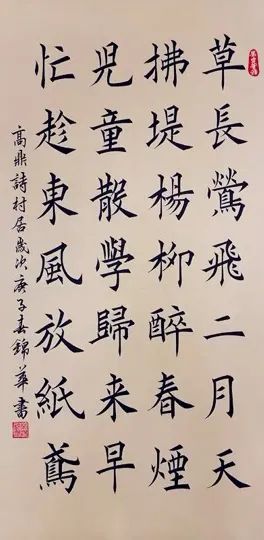 草長鶯飛二月天
拂堤楊柳醉春煙
児童散學歸来早
忙趁東風放紙鳶
高鼎詩村居歲次庚子春錦華書